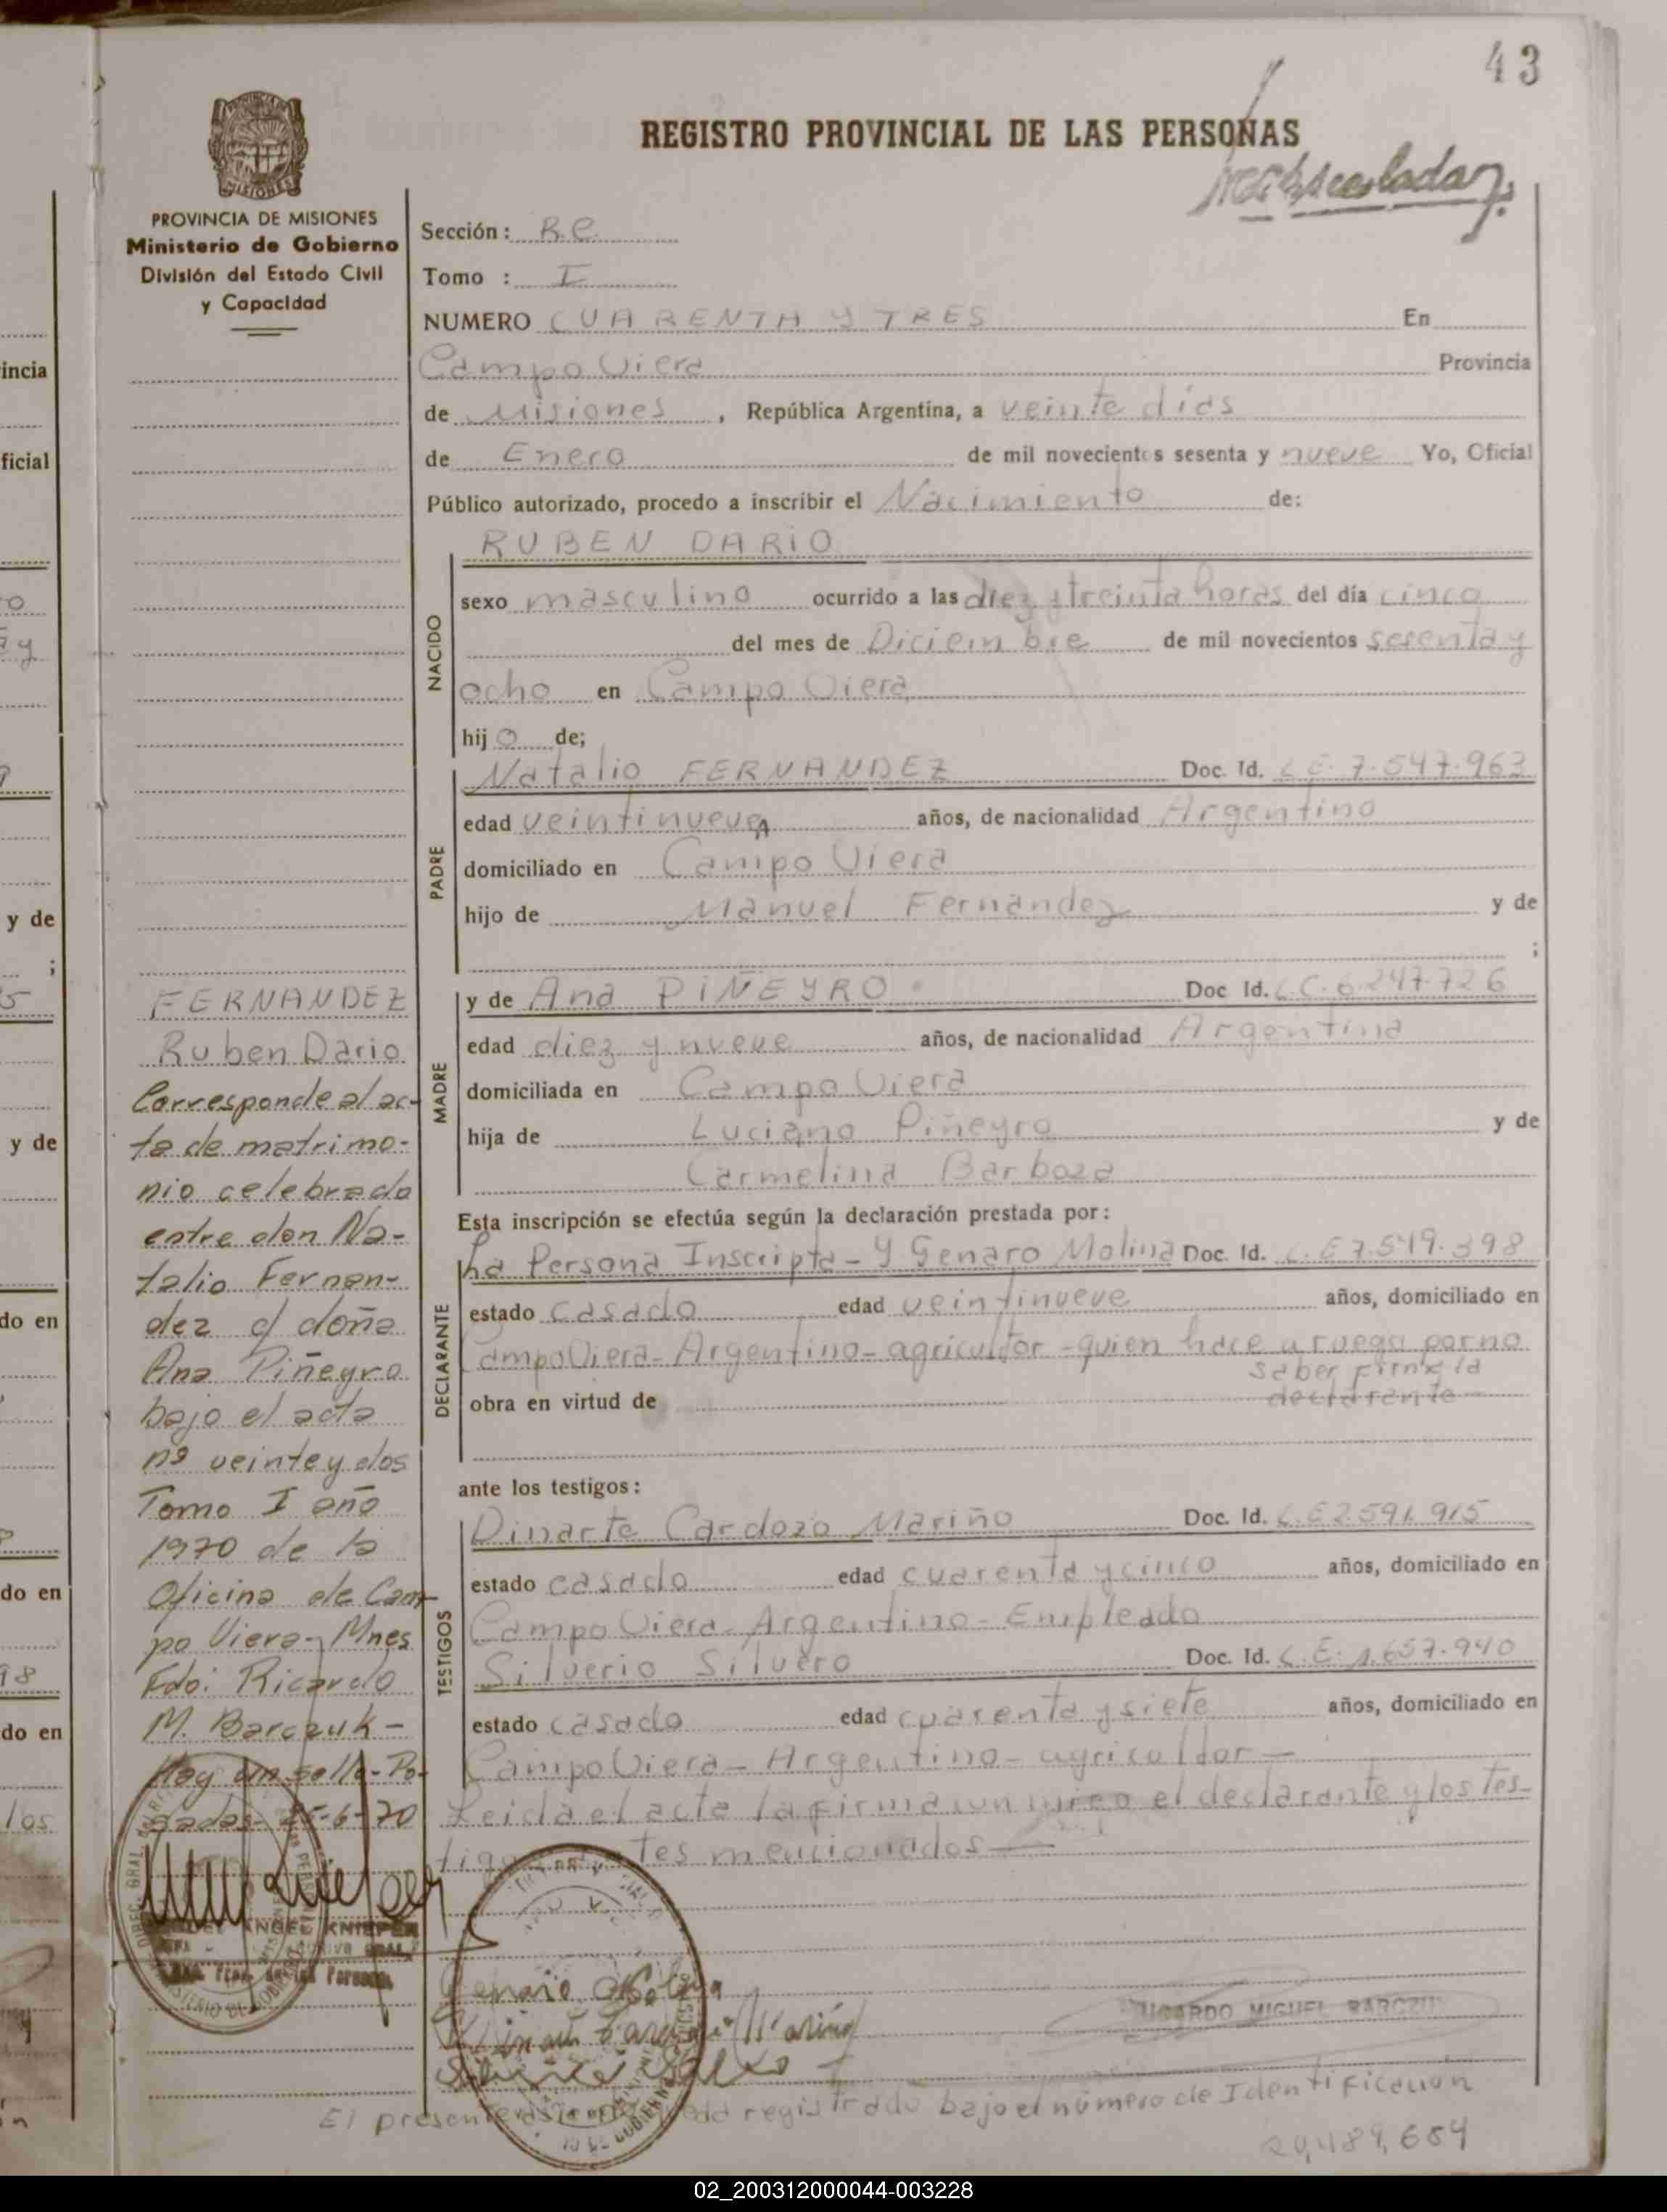 43
REGISTRO PROVINCIAL DE LAS PERSONAS
MISIONES
PROVINCIA DE MISIONES
Ministerio de Gobierno
División del Estado Civil
y Capacidad
Sección: R.C.
Tomo : I
NUMERO CUARENTA Y TRES En
Campo Viera Provincia
de Misiones , República Argentina, a veinte dias
de Enero de mil novecientos sesenta y nueve Yo, Oficial
Público autorizado, procedo a inscribir el Nacimiento de:
RUBEN DARIO
NACIDO
sexo masculino ocurrido a las diez y treinta horas del día cinco
del mes de Diciembre de mil novecientos sesenta y
ocho en Campo Viera
hij o de;
PADRE
Natalio FERNANDEZ Doc. Id. L.E. 7.547.963
edad veintinueve años, de nacionalidad Argentino
domiciliado en Campo Viera
hijo de Manuel Fernandez y de
;
MADRE
y de Ana PIÑEYRO Doc Id. L.C. 6.247.726
edad diez y nueve años, de nacionalidad Argentina
domiciliada en Campo Viera
hija de Luciano Piñeyro y de
Carmelina Barboza
Esta inscripción se efectúa según la declaración prestada por:
DECLARANTE
La Persona Inscripta - Y Genaro Molina Doc. Id. L.E 7.549.398
estado casado edad veintinueve años, domiciliado en
Campo Viera - Argentino - agricultor - quien hace a ruego por no
saber firmar la
obra en virtud de declarante
ante los testigos:
TESTIGOS
Dinarte Cardozo Mariño Doc. Id. L.E 2.591.915
estado casado edad cuarenta y cinco años, domiciliado en
Campo Viera. Argentino - Empleado
Silverio Silvero Doc. Id. L.E. 1.657.940
estado casado edad cuarenta y siete años, domiciliado en
Campo Viera - Argentino - agricultor -
Leida el acta la firma el declarante y los tes-
tes mencionados
FERNANDEZ
Ruben Dario
Corresponde al ac-
ta de matrimo-
nio celebrado
entre don Na-
talio Fernan-
dez c/ doña
Ana Piñeyro
bajo el acta
nº veinte y dos
Tomo I año
1970 de la
Oficina de Cam-
po Viera - Mnes
Fdo: Ricardo
M. Barczuk -
Hay un sello - Po-
sadas 25-6-70
ANGEL KNIEPER
Genaro Molina
Silverio Silvero
MIGUEL BARCZUK
El presente registrado bajo el número de Identificacion
20,489,684
incia
ficial
y de
;
y de
do en
do en
98
do en
los
02_200312000044-003228